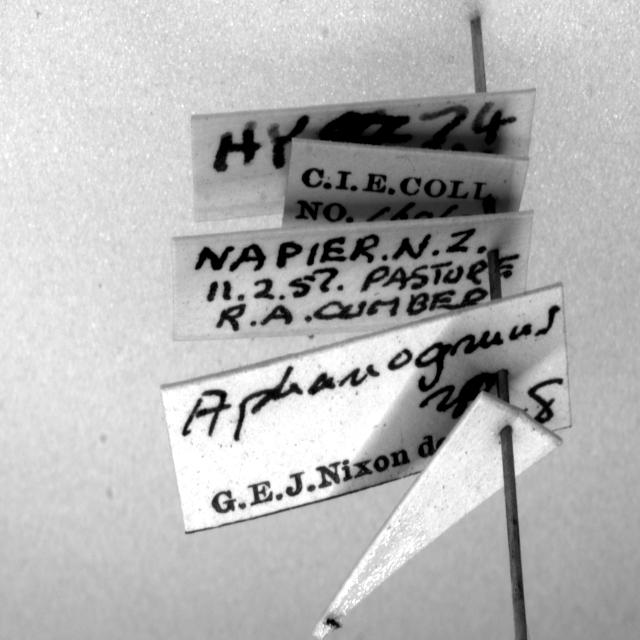 HY 274
C.I.E.COLL.
NO.
NAPIER.N.Z.
11.2.57. PASTURE
R.A.CUMBER
Aphanogmus
G.E.J.Nixon de